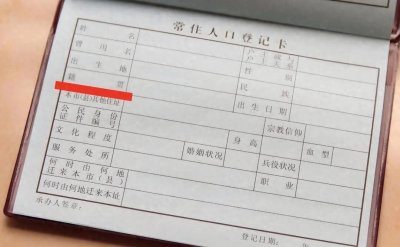 常住人口登记卡
姓名
曾用名 性别
出生地 民族
籍贯 出生日期
本市(县)其他住址 宗教信仰
公民身份证件编号 身高 血型
文化程度 婚姻状况 兵役状况
服务处所 职业
何时由何地迁来本市(县)
何时由何地迁来本址
承办人签章: 登记日期: